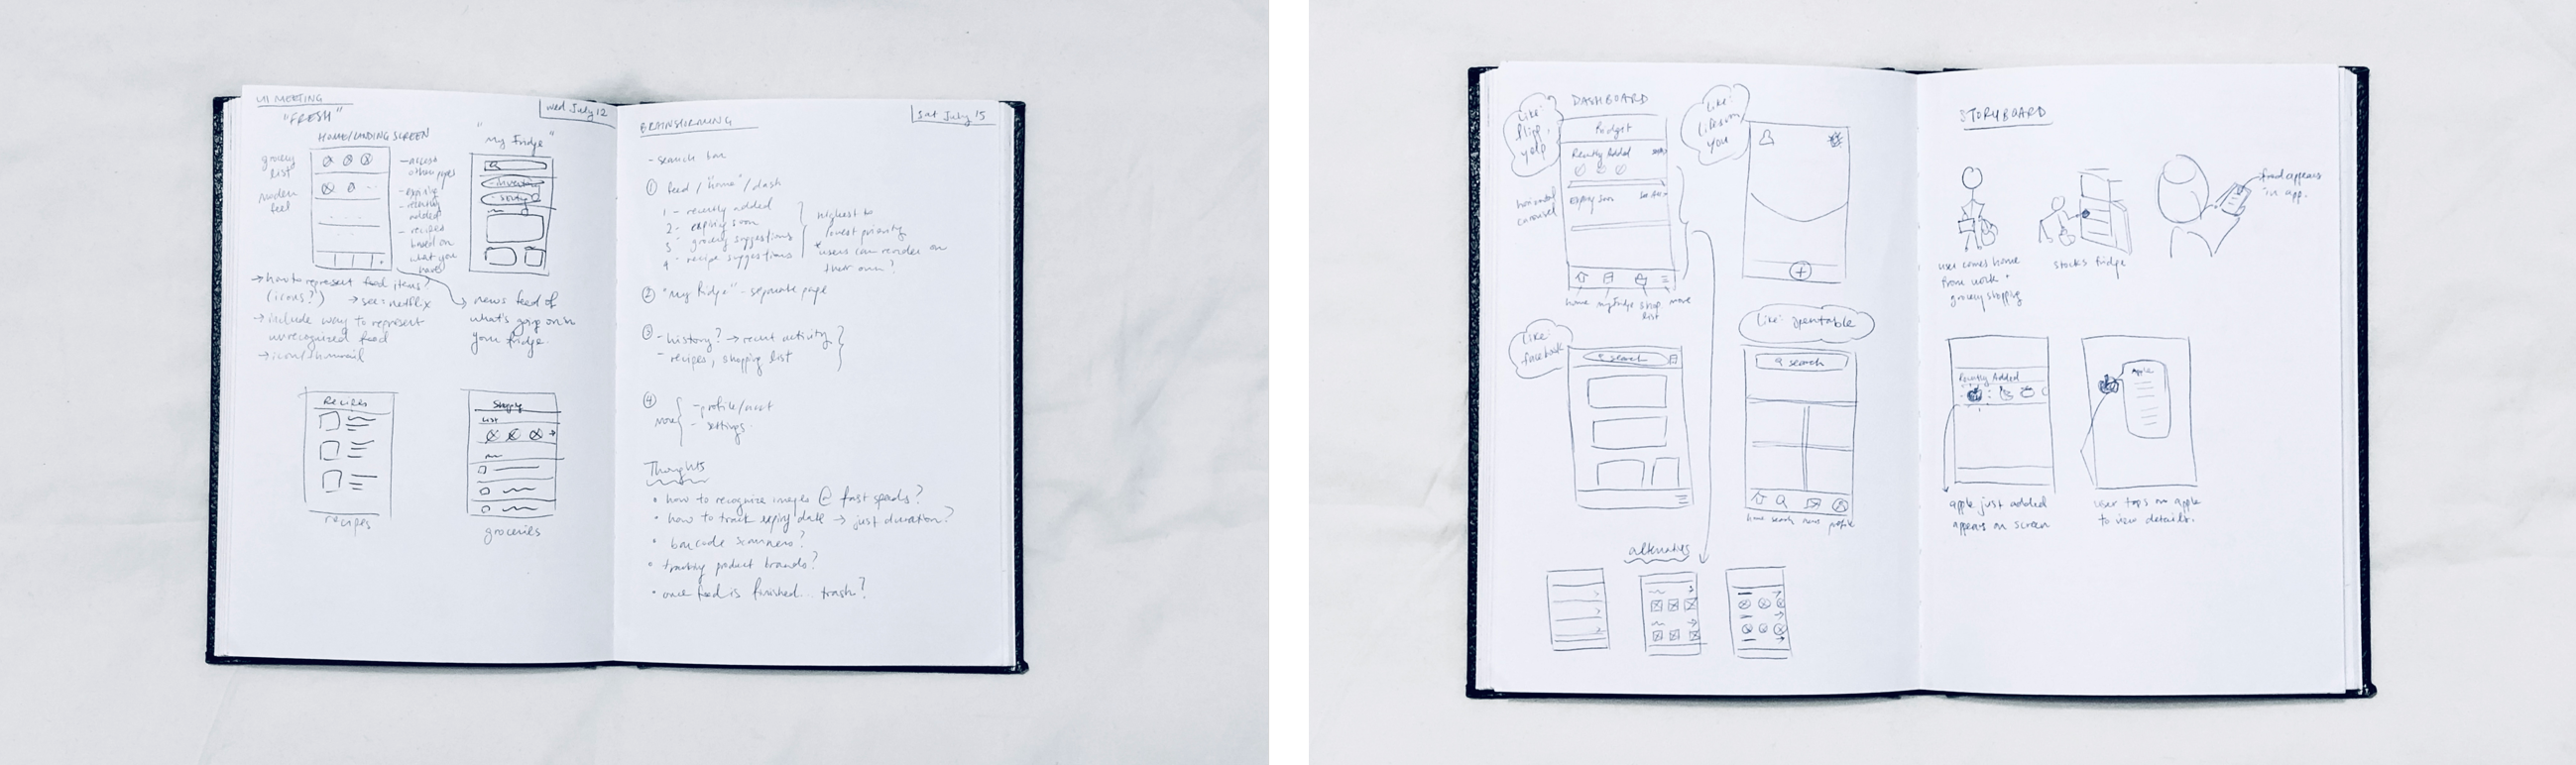 UI MEETING
"FRESH"
wed July 12
HOME/LANDING SCREEN
grocery
list
modern
feel
- access
other pages
- expiring
- recently
added
- recipes
based on
what you
have
"My Fridge"
→ how to represent food items?
(icons?) → see: netflix
→ include way to represent
unrecognized food
→ icon/thumbnail
news feed of
what's going on in
your fridge.
Recipes
recipes
List
groceries
Sat July 15
BRAINSTORMING
- search bar
① feed / "home" / dash
1 - recently added
2 - expiring soon
3 - grocery suggestions
4 - recipe suggestions
highest to
lowest priority
* users can reorder on
their own?
② "my fridge" - separate page
③ - history? → recent activity
- recipes, shopping list
④
more
- profile/acct
- settings
Thoughts
• how to recognize images @ fast speeds?
• how to track expiry date → just duration?
• barcode scanners?
• tracking product brands?
• once food is finished... trash?
DASHBOARD
like:
flipp,
yelp
Fridget
Recently Added
Expiring soon
horizontal
carousel
home my fridge shop
list
more
like:
you
like:
facebook
search
like: opentable
search
home search news profile
alternatives
STORYBOARD
user comes home
from work +
grocery shopping
stocks fridge
food appears
in app.
Recently Added
apple just added
appears on screen
Apple
user taps on apple
to view details.